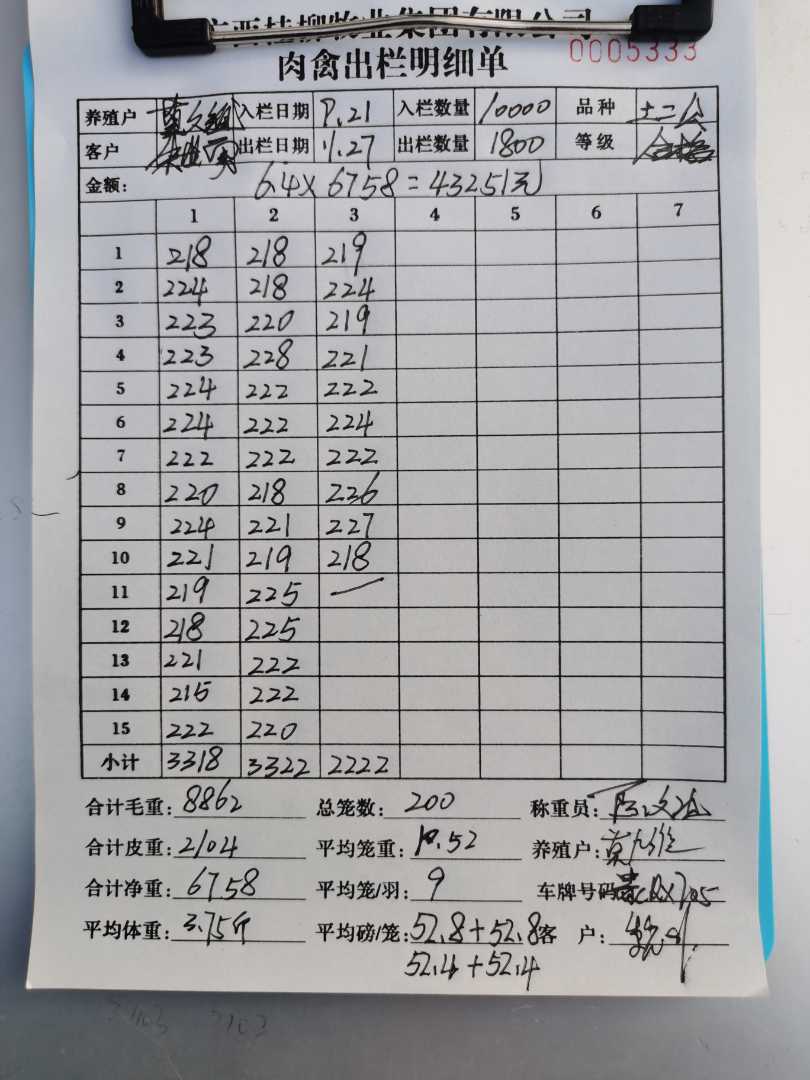 广西桂柳牧业集团有限公司
0005333
肉禽出栏明细单
养殖户 入栏日期 9.21 入栏数量 10000 品种 土二公
客户 出栏日期 11.27 出栏数量 1800 等级 合格
金额: 6.4×6758=43251元
1 2 3 4 5 6 7
1 218 218 219
2 224 218 224
3 223 220 219
4 223 228 221
5 224 222 222
6 224 222 224
7 222 222 222
8 220 218 226
9 224 221 227
10 221 219 218
11 219 225 —
12 218 225
13 221 222
14 215 222
15 222 220
小计 3318 3322 2222
合计毛重: 8862 总笼数: 200 称重员:
合计皮重: 2104 平均笼重: 10.52 养殖户:
合计净重: 6758 平均笼/羽: 9 车牌号码:
平均体重: 3.75斤 平均磅/笼: 52.8+52.8 客户:
52.4+52.4